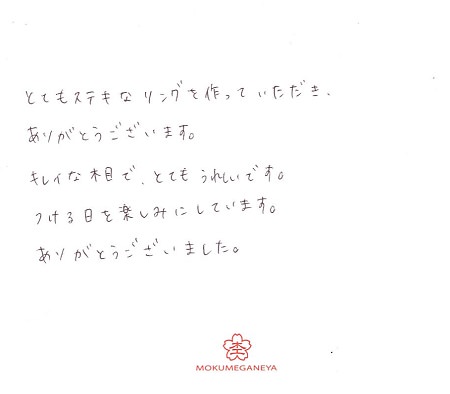 とてもステキなリングを作っていただき、
ありがとうございます。
キレイな木目で、とてもうれしいです。
つける日を楽しみにしています。
ありがとうございました。
MOKUMEGANEYA